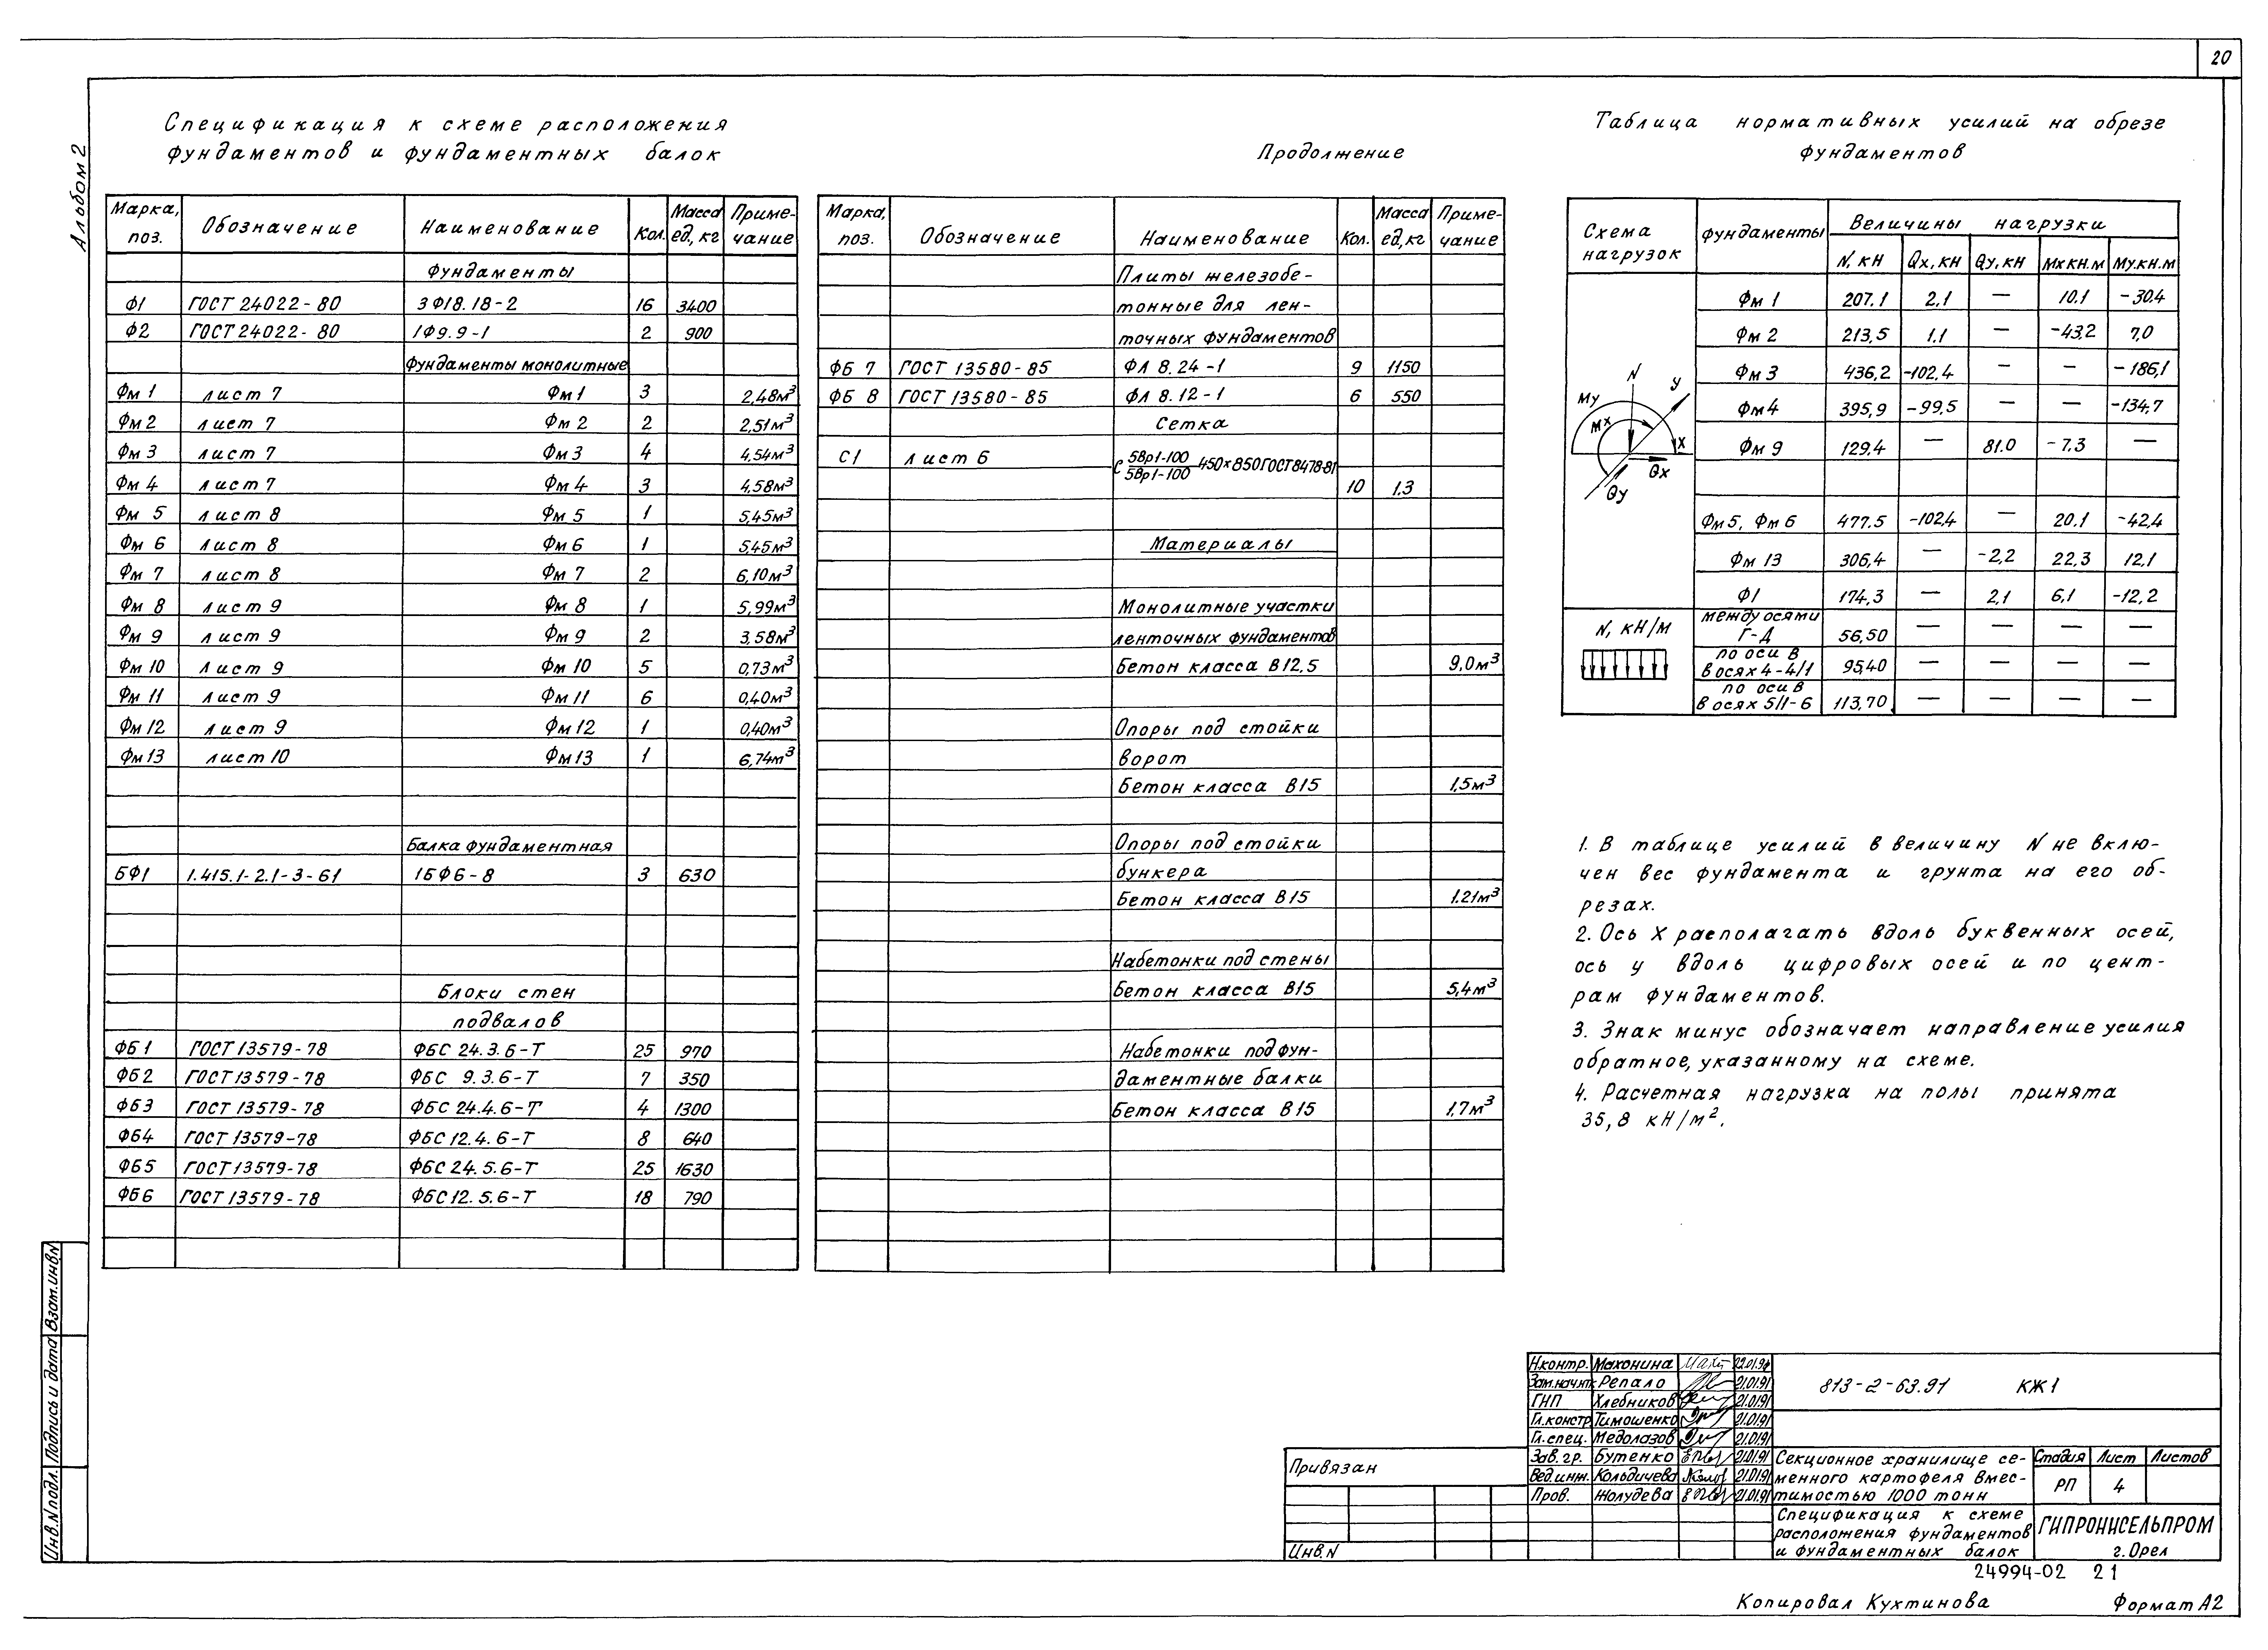 20
Альбом 2
Спецификация к схеме расположения
фундаментов и фундаментных балок
Марка, поз. Обозначение Наименование Кол. Масса ед, кг Приме-чание
Фундаменты
Ф1 ГОСТ 24022-80 3Ф18.18-2 16 3400
Ф2 ГОСТ 24022-80 1Ф9.9-1 2 900
Фундаменты монолитные
Фм 1 лист 7 Фм 1 3 2,48м³
Фм 2 лист 7 Фм 2 2 2,51м³
Фм 3 лист 7 Фм 3 4 4,54м³
Фм 4 лист 7 Фм 4 3 4,58м³
Фм 5 лист 8 Фм 5 1 5,45м³
Фм 6 лист 8 Фм 6 1 5,45м³
Фм 7 лист 8 Фм 7 2 6,10м³
Фм 8 лист 9 Фм 8 1 5,99м³
Фм 9 лист 9 Фм 9 2 3,58м³
Фм 10 лист 9 Фм 10 5 0,73м³
Фм 11 лист 9 Фм 11 6 0,40м³
Фм 12 лист 9 Фм 12 1 0,40м³
Фм 13 лист 10 Фм 13 1 6,74м³
Балка фундаментная
БФ1 1.415.1-2.1-3-61 1БФ6-8 3 630
Блоки стен
подвалов
ФБ 1 ГОСТ 13579-78 ФБС 24.3.6-Т 25 970
ФБ2 ГОСТ 13579-78 ФБС 9.3.6-Т 7 350
ФБ3 ГОСТ 13579-78 ФБС 24.4.6-Т 4 1300
ФБ4 ГОСТ 13579-78 ФБС 12.4.6-Т 8 640
ФБ5 ГОСТ 13579-78 ФБС 24.5.6-Т 25 1630
ФБ6 ГОСТ 13579-78 ФБС 12.5.6-Т 18 790
Продолжение
Марка, поз. Обозначение Наименование Кол. Масса ед,кг Приме-чание
Плиты железобе-
тонные для лен-
точных фундаментов
ФБ 7 ГОСТ 13580-85 ФЛ 8.24-1 9 1150
ФБ 8 ГОСТ 13580-85 ФЛ 8.12-1 6 550
Сетка
С1 лист 6 С 5Вр1-100/5Вр1-100 450×850 ГОСТ 8478-81
10 1.3
Материалы
Монолитные участки
ленточных фундаментов
Бетон класса В12,5 9,0м³
Опоры под стойки
ворот
Бетон класса В15 1,5м³
Опоры под стойки
бункера
Бетон класса В15 1.21м³
Набетонки под стены
Бетон класса В15 5,4м³
Набетонки под фун-
даментные балки
Бетон класса В15 1,7м³
Таблица нормативных усилий на обрезе
фундаментов
Схема нагрузок Фундаменты Величины нагрузки
N, кН Qx, кН Qy, кН Mx кН.м My.кН.м
Фм 1 207.1 2.1 — 10.1 -30.4
Фм 2 213,5 1.1 — -43,2 7,0
Фм 3 436,2 -102,4 — — -186,1
Фм 4 395,9 -99,5 — — -134,7
Фм 9 129.4 — 81.0 -7.3 —
Фм 5, Фм 6 477.5 -102,4 — 20.1 -42,4
Фм 13 306,4 — -2,2 22,3 12,1
Ф1 174,3 — 2,1 6,1 -12,2
N
y
My
Mx
x
Qx
Qy
N, кН/м
между осями
Г-Д 56,50 — — — —
по оси В
в осях 4-4/1 95,40 — — — —
по оси В
в осях 5/1-6 113,70 — — — —
1. В таблице усилий в величину N не вклю-
чен вес фундамента и грунта на его об-
резах.
2. Ось Х располагать вдоль буквенных осей,
ось у вдоль цифровых осей и по цент-
рам фундаментов.
3. Знак минус обозначает направление усилия
обратное, указанному на схеме.
4. Расчетная нагрузка на полы принята
35,8 кН/м².
Инв.N подл. Подпись и дата Взам.инв.N
Привязан
Инв.N
Н.контр. Махонина
Зам.нач.нтк Репало 21.01.91
ГНП Хлебников 21.01.91
Гл.констр Тимошенко 21.01.91
Гл.спец. Медолазов 21.01.91
Зав.гр. Бутенко 21.01.91
Вед.инж. Кольдичева 21.01.91
Пров. Жолудева 21.01.91
813-2-63.91 КЖ1
Секционное хранилище се-
менного картофеля вмес-
тимостью 1000 тонн
Стадия Лист Листов
РП 4
Спецификация к схеме
расположения фундаментов
и фундаментных балок
ГИПРОНИСЕЛЬПРОМ
г.Орел
24994-02 21
Копировал Кухтинова Формат А2